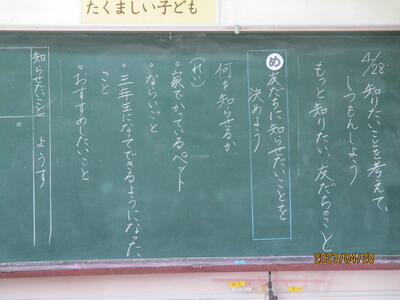 たくましい子ども
4/28
知りたいことを考えて、
しつもんしよう
もっと知りたい、友だちのこと
め
友だちに知らせたいことを
決めよう
何を知らせるか
(れい)
・家でかっているペット
・ならいごと
・三年生になってできるようになった
こと
・おすすめしたいこと
知らせたいこと
ようす
2023/04/28